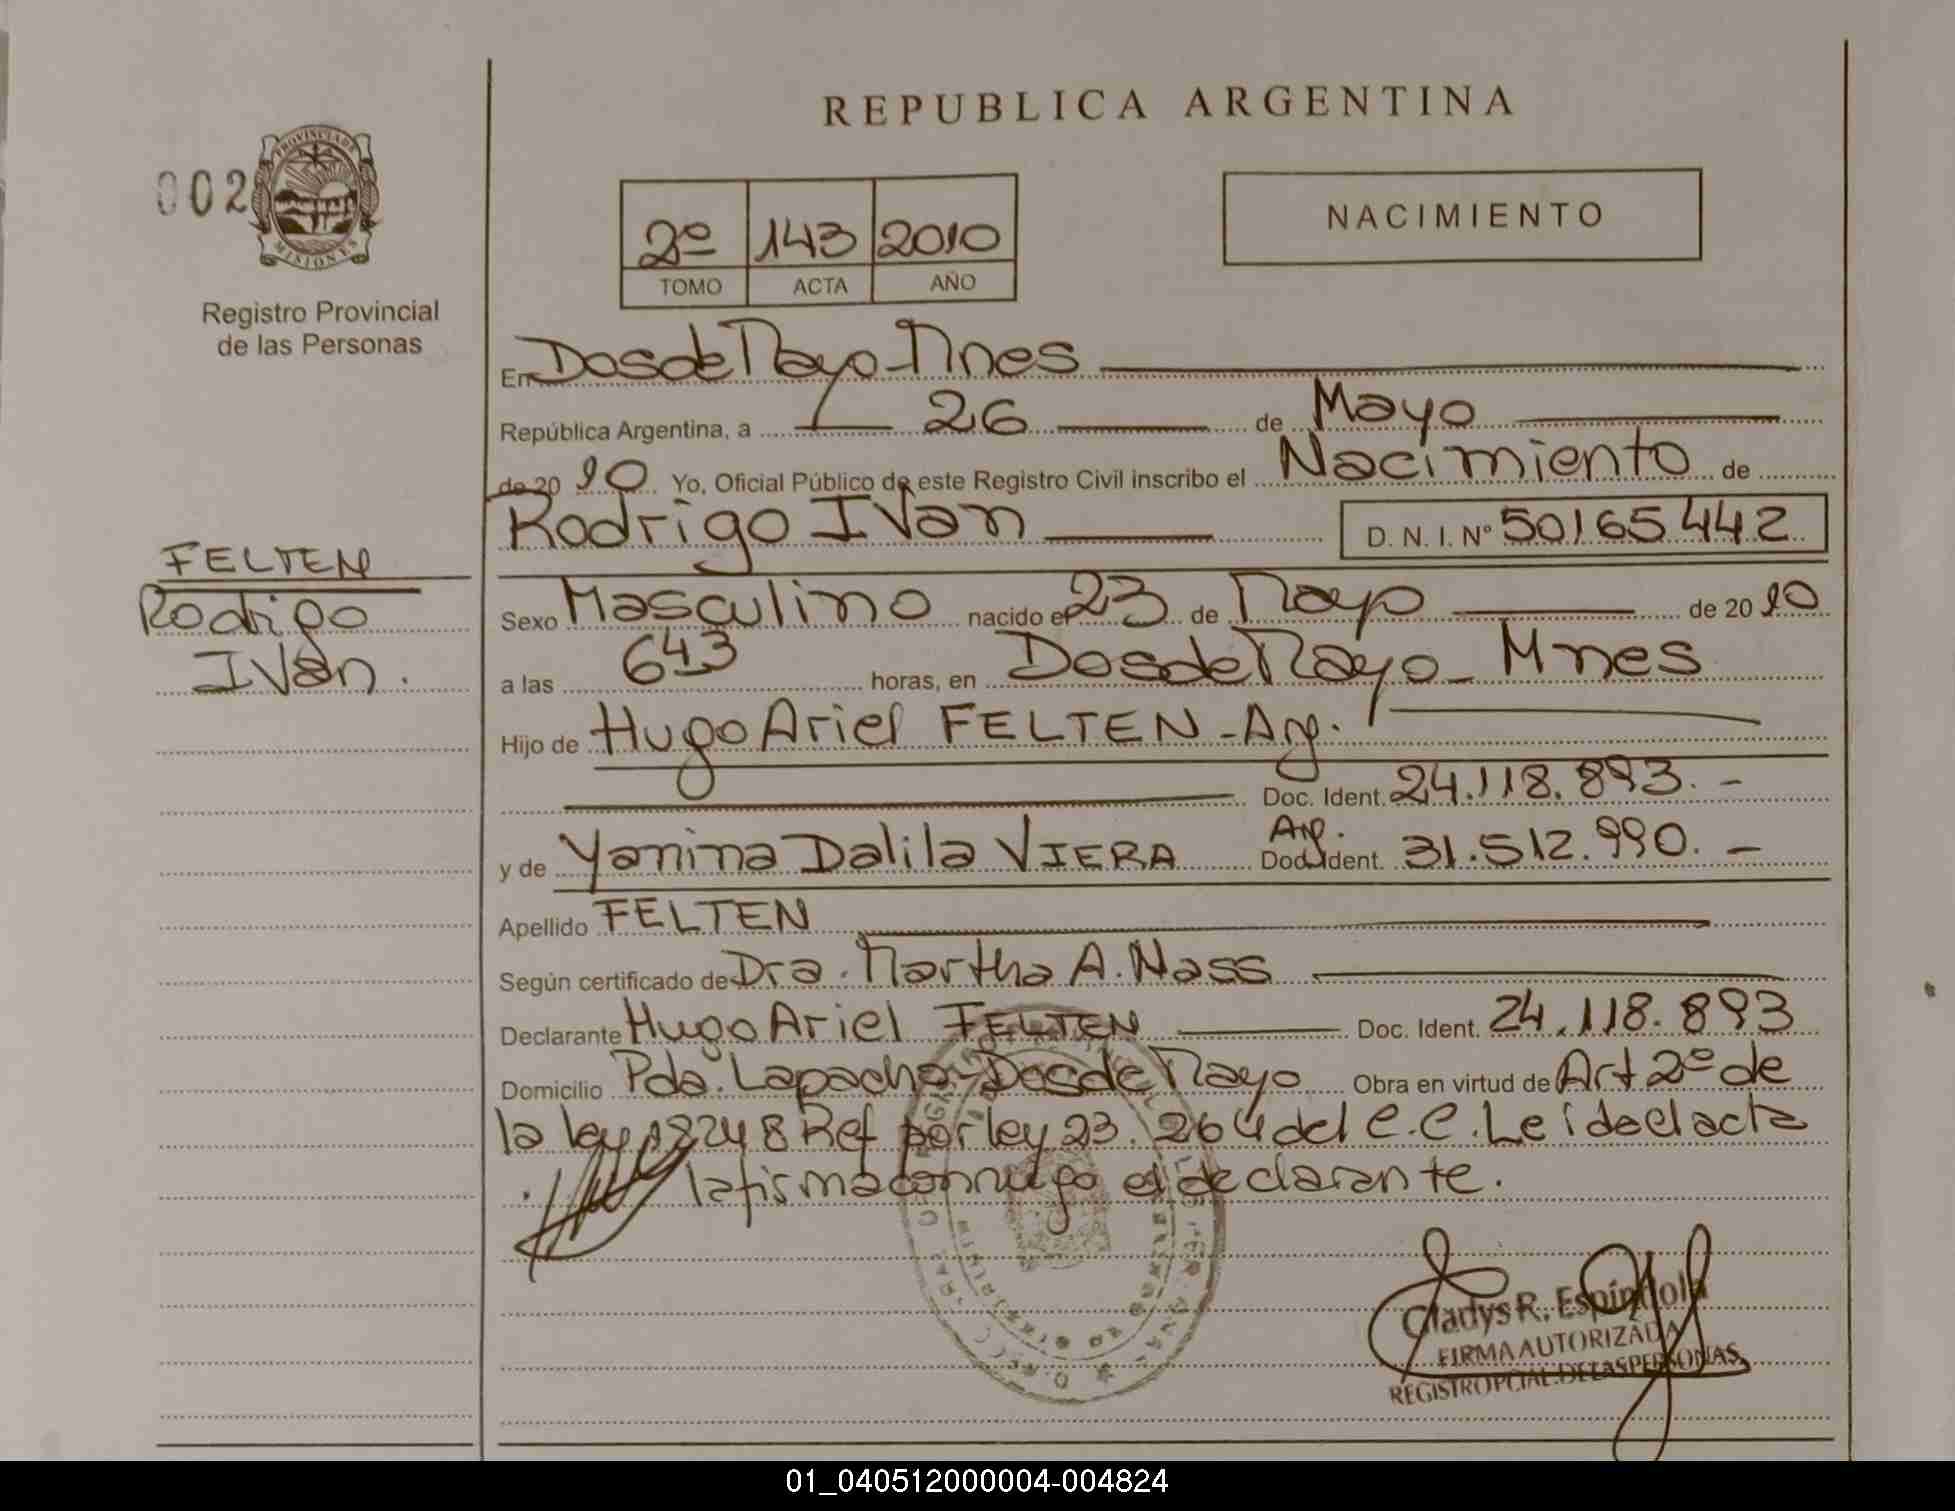 REPUBLICA ARGENTINA
002
PROVINCIA DE
MISIONES
Registro Provincial
de las Personas
2º 143 2010
TOMO ACTA AÑO
NACIMIENTO
En Dos de Mayo - Mnes
República Argentina, a 26 de Mayo
de 20 10 Yo, Oficial Público de este Registro Civil inscribo el Nacimiento de
Rodrigo Ivan D. N. I. Nº 50165442
FELTEN
Rodrigo
Ivan.
Sexo Masculino nacido el 23 de Mayo de 20 10
a las 643 horas, en Dos de Mayo - Mnes
Hijo de Hugo Ariel FELTEN - Arg.
Doc. Ident. 24.118.893. -
y de Yanina Dalila VIERA Arg. Doc. Ident. 31.512.990. -
Apellido FELTEN
Según certificado de Dra. Martha A. Nass
Declarante Hugo Ariel FELTEN Doc. Ident. 24.118.893
Domicilio Pda. Lapacho - Dos de Mayo Obra en virtud de Art 2º de
la ley 18248 Ref por ley 23.264 del C.C. Leida el acta
la firma conmigo el declarante.
Gladys R. Espíndola
FIRMA AUTORIZADA
REGISTRO PCIAL. DE LAS PERSONAS
01_040512000004-004824